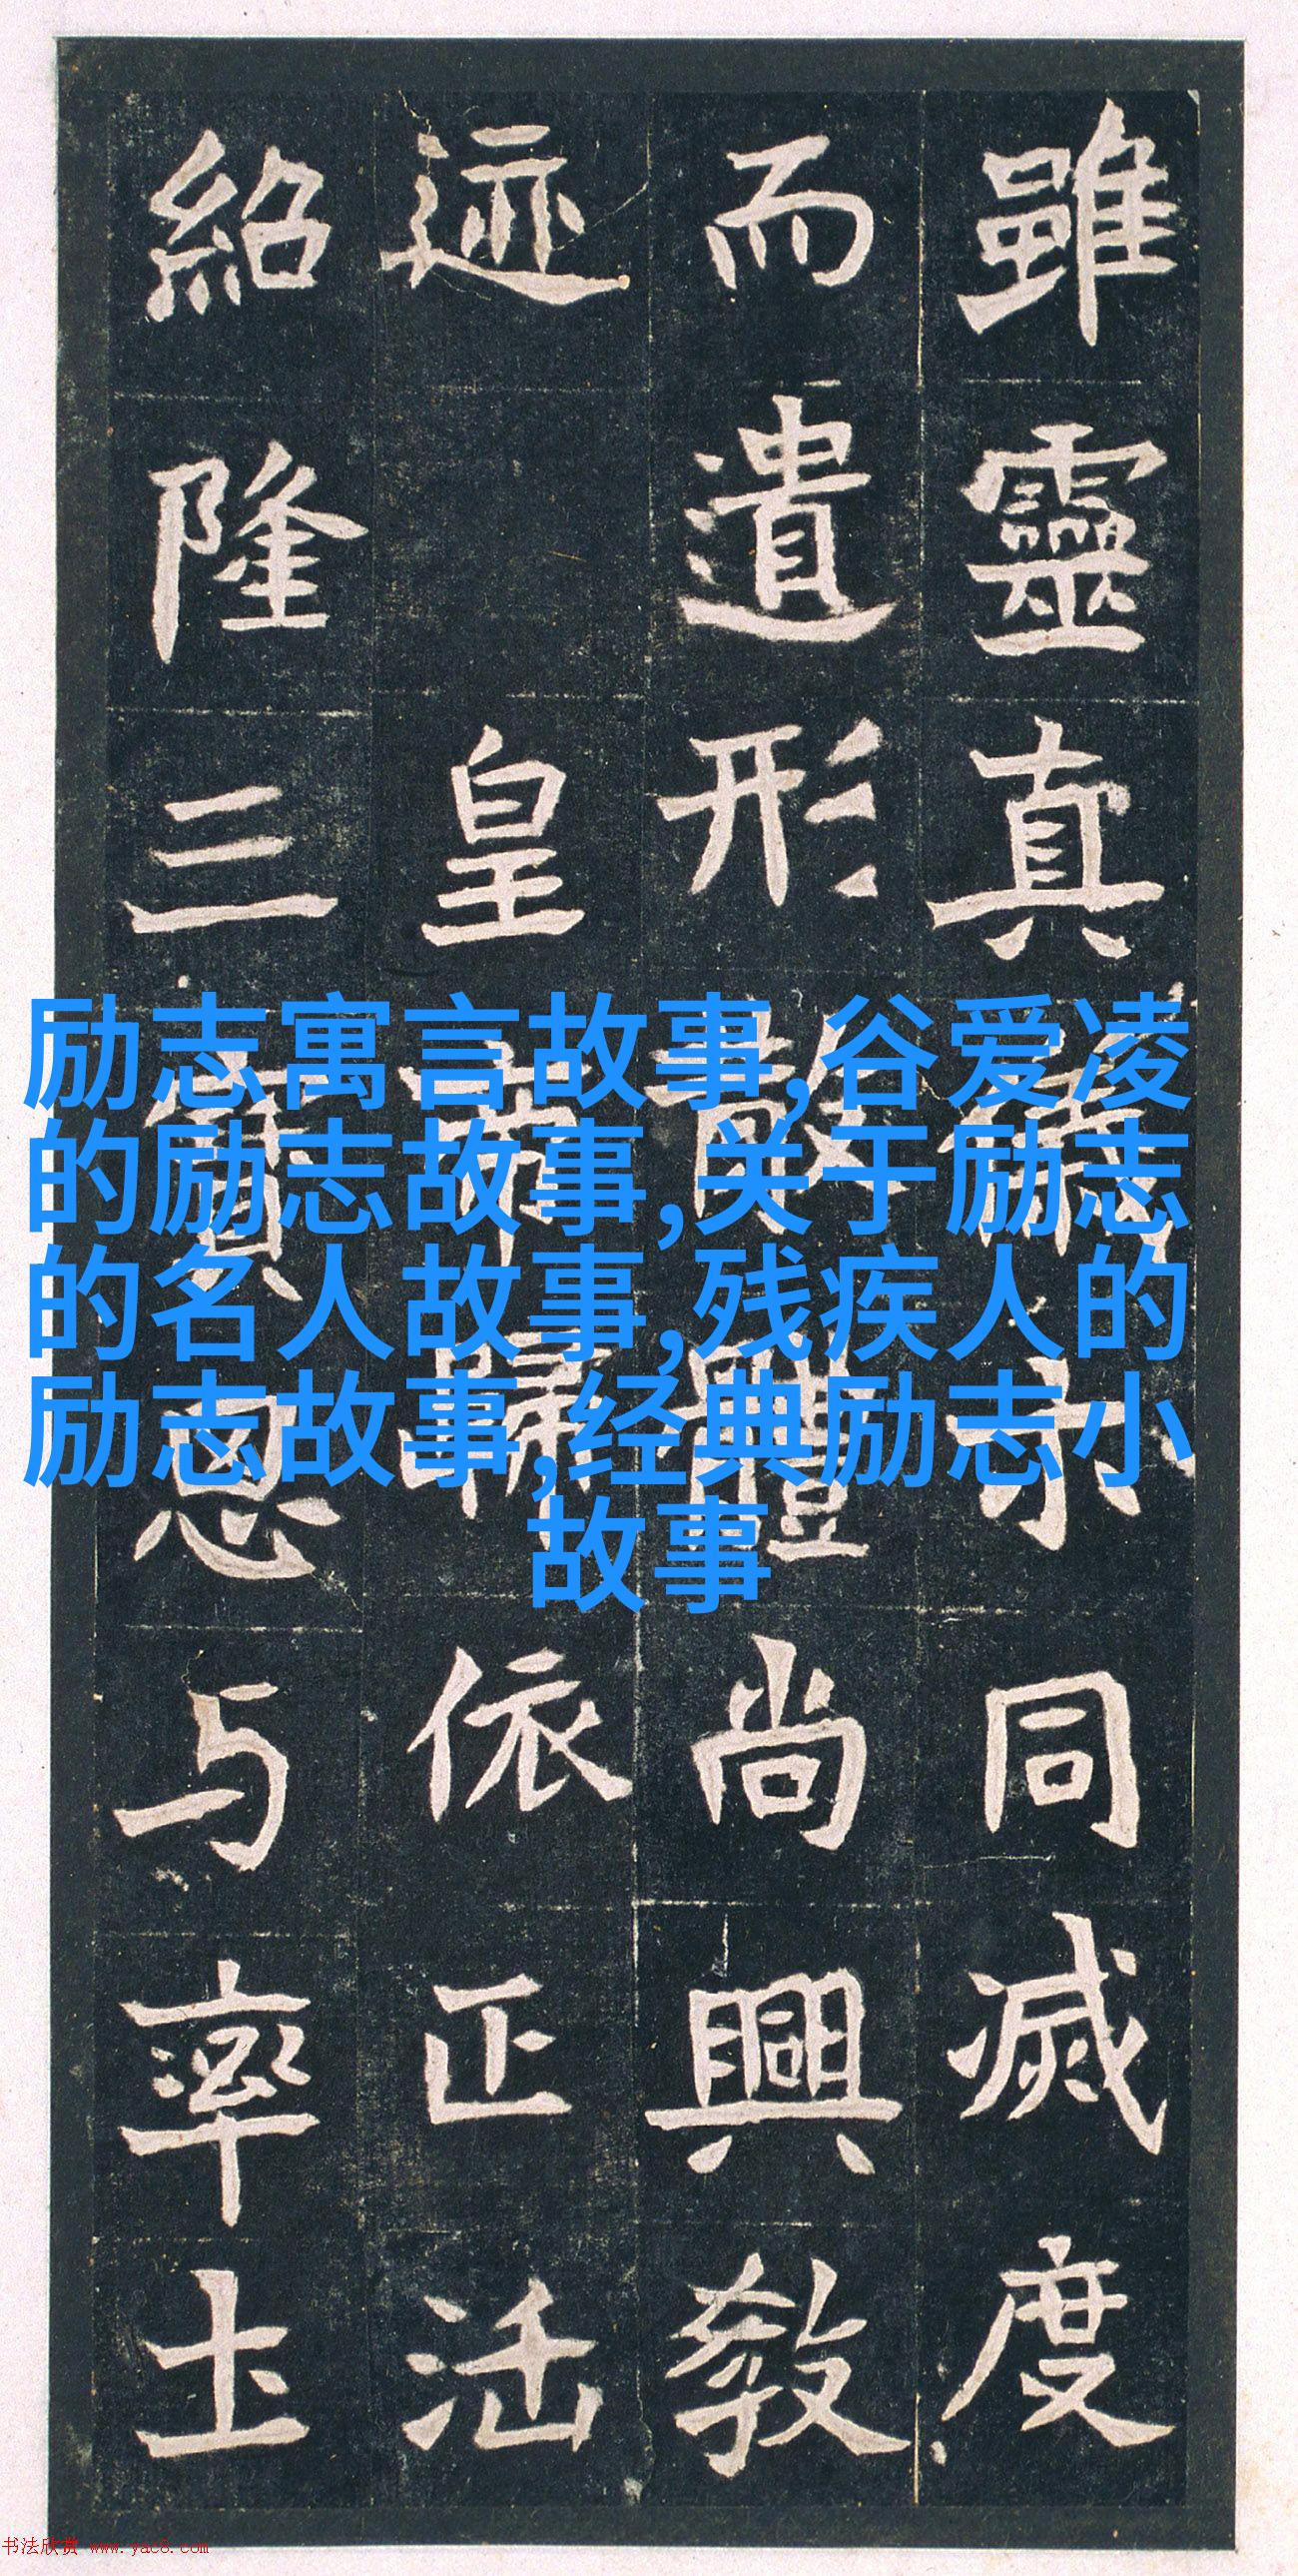 雖靈真同滅度
而遺形散體尚興教
迹 皇帝歸依正法
紹隆三寶恩与率土
励志寓言故事,谷爱凌
的励志故事,关于励志
的名人故事,残疾人的
励志故事,经典励志小
故事
书法欣赏 www.yac8.com